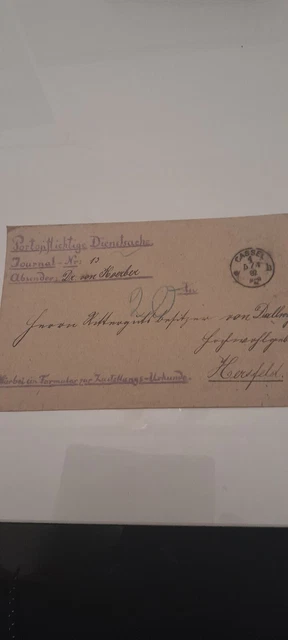 Portopflichtige Dienstsache.
Journal-No. 13
Absender: Dr. von
CASSEL
20
Herrn Rittergutsbesitzer von
Hochwohlgeb
Hersfeld.
Hierbei ein Formular zur Zustellungs-Urkunde.